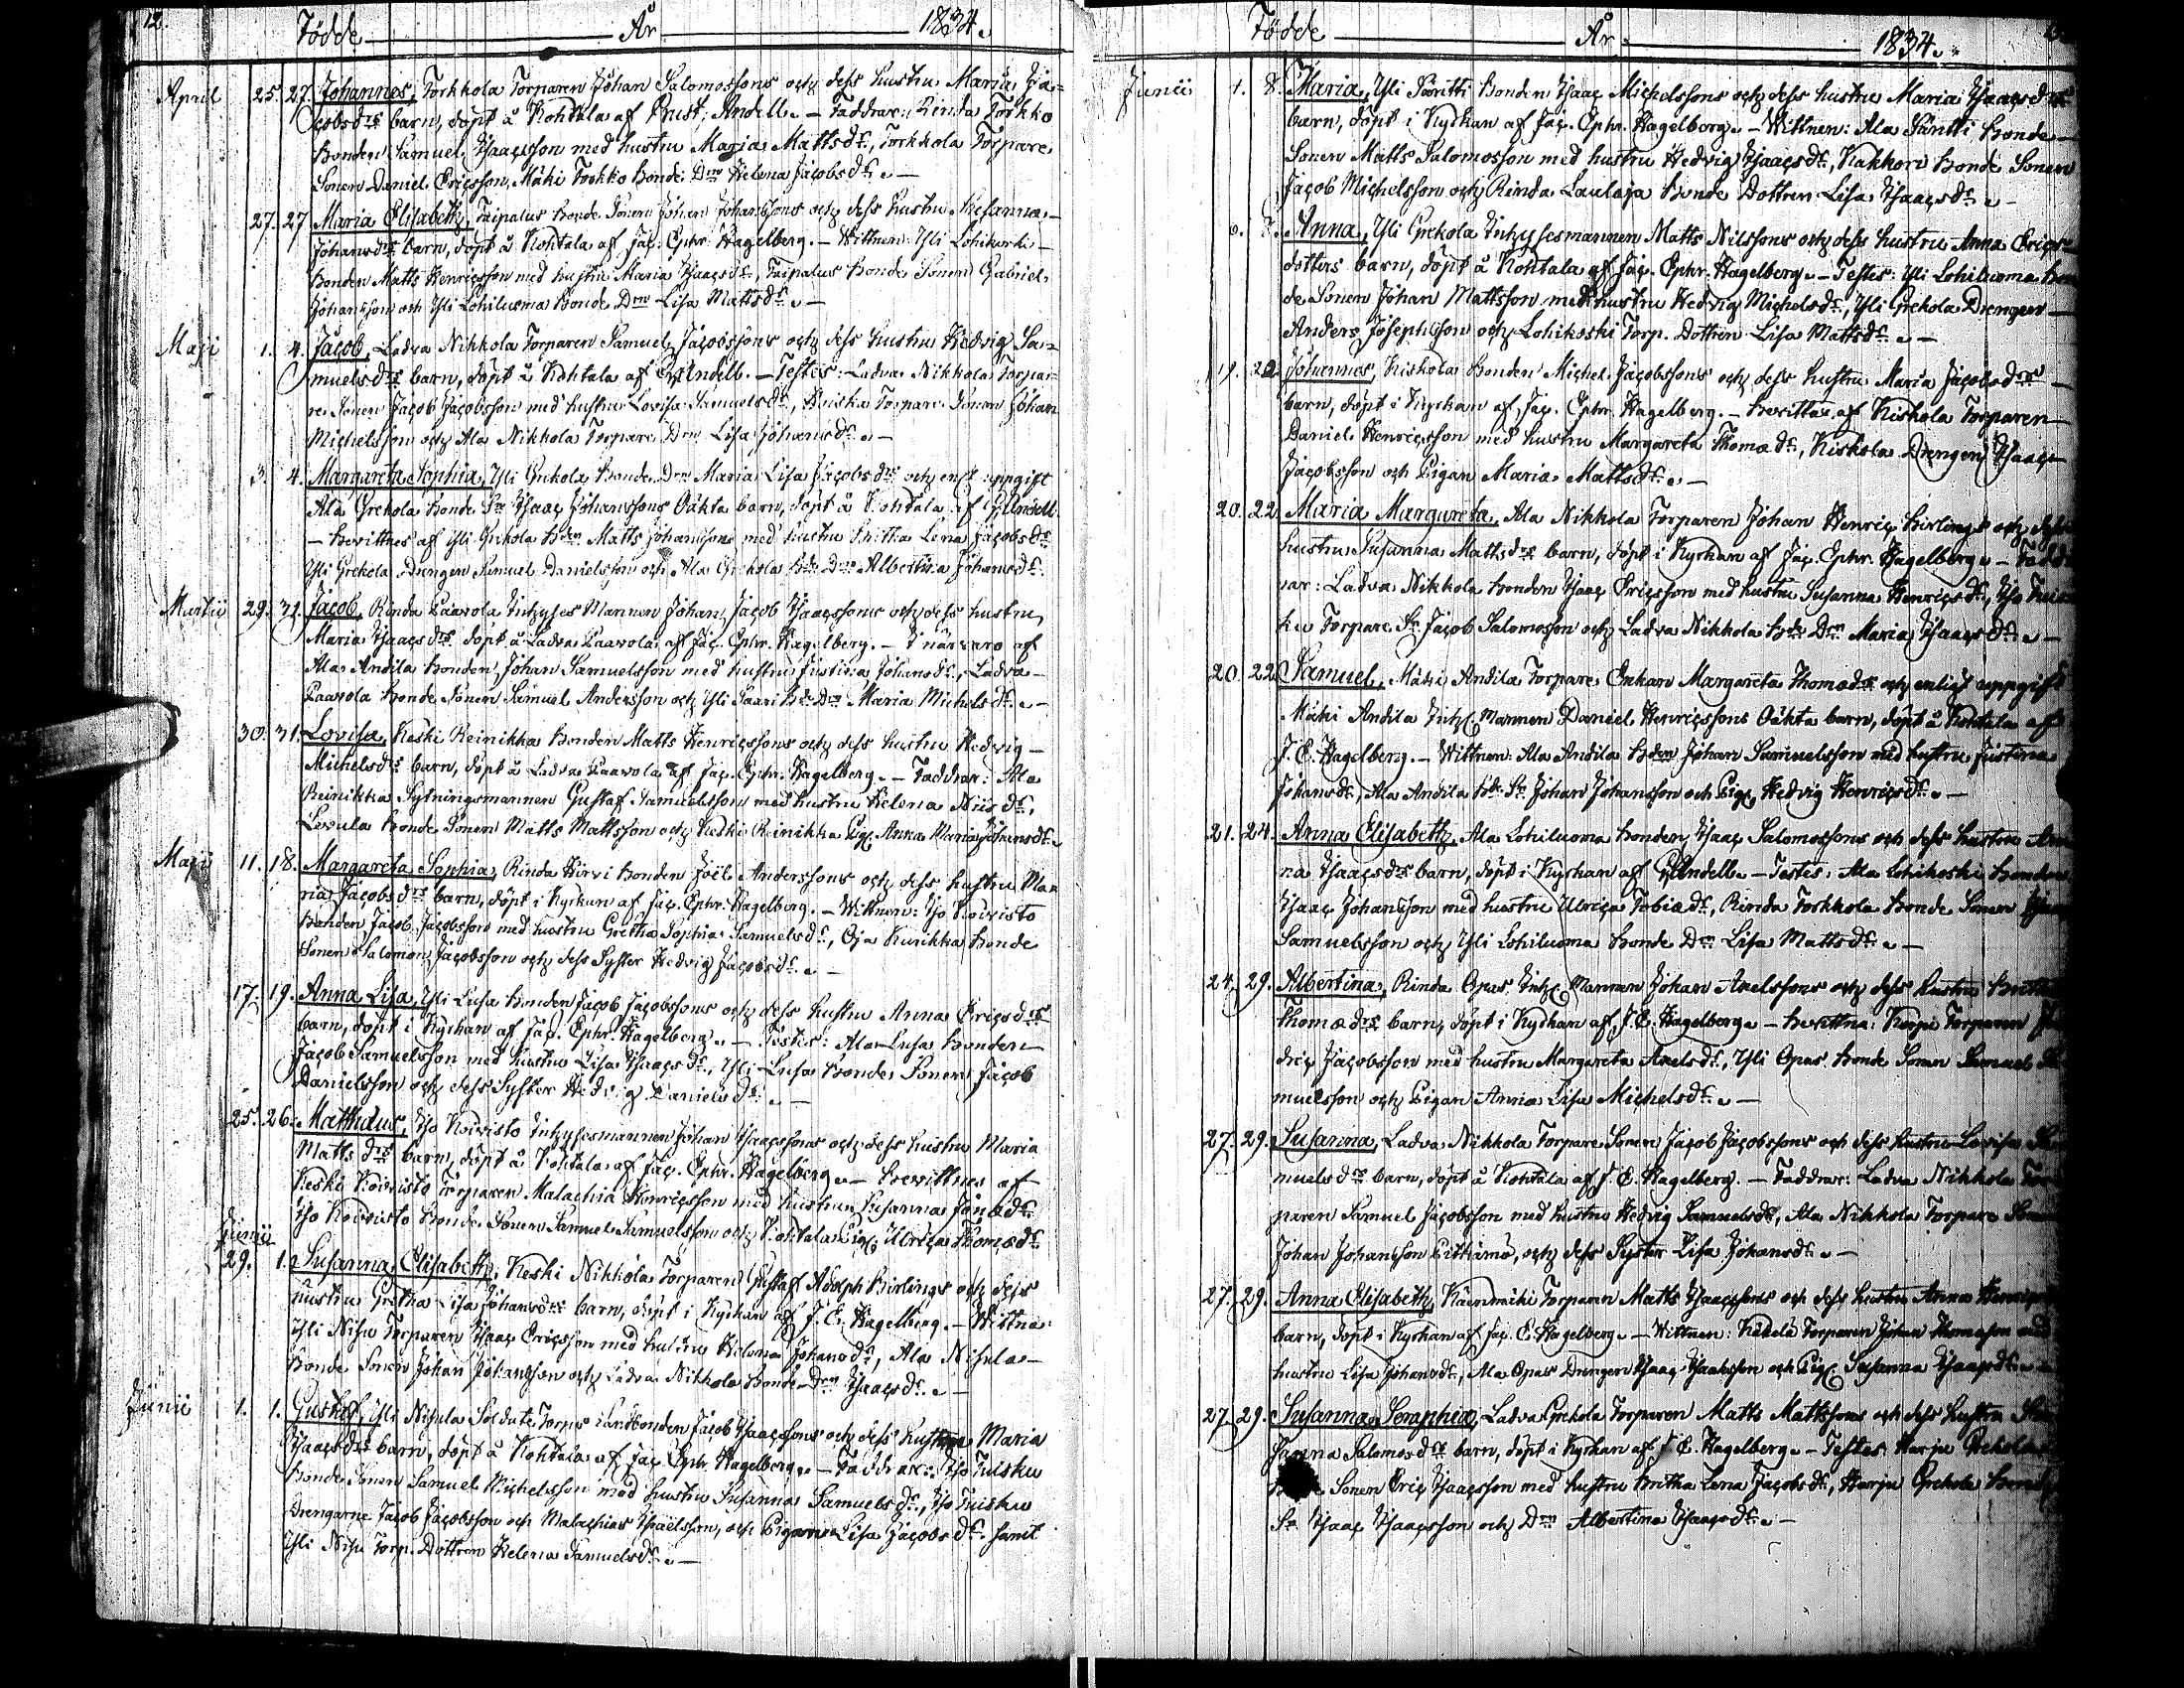 12.
Födde År 1834.
April 25. 27. Johannes, Torkkola Torparen Johan Salomossons och dess hustru Maria Ja-
cobsdrs barn, döpt å Kohtala af Prost: Andell. — Faddrar: Rinda Torkko
Bonden Samuel Isaacsson med hustru Maria Mattsdr, Torkkola Torpare
Sonen Daniel Ericsson, Mäki Torkko Bonde Drn Helena Jacobsdr. —
27. 27 Maria Elisabeth, Taipalus Bonde Sonen Johan Johanssons och dess hustru Susanna
Johansdrs barn, döpt å Kohtala af Jac. Ephr. Hagelberg. — Wittnen: Yli
Bonden Matts Henricsson med hustru Maria Isaacsdr, Taipalus Bonde Sonen Gabriel
Johansson och Yli Lohiluoma Bonde Drn Lisa Mattsdr. —
Maji 1. 4. Jacob, Ladva Nikkola Torparen Samuel Jacobssons och dess hustru Hedvig Sa-
muelsdrs barn, döpt å Kohtala af Andell. — Testes: Ladva Nikkola Torpa-
re Sonen Jacob Jacobsson med hustru Lovisa Samuelsdr, Torpare Sonen Johan
Michelsson och Ala Nikkola Torpare Drn Lisa Johansdr. —
3. 4. Margareta Sophia, Yli Grekola Bonde Drn Maria Lisa Jacobsdrs och enl. uppgift
Ala Grekola Bonde Sn Isaac Johanssons Oäkta barn, döpt å Kohtala af Andell
— Bevittnes af Yli Grekola Bden Matts Johansson med hustru Britha Lena Jacobsdr
Yli Grekola Drengen Samuel Danielsson och Ala Grekola Bde Drn Albertina Johansdr.
Martii 29. 31. Jacob, Rinda Paavola Inhyses Mannen Johan Jacob Isaacssons och dess hustru
Maria Isaacsdrs döpt å Ladva Paavola af Jac. Ephr. Hagelberg. — I närvaro af
Ala Andila Bonden Johan Samuelsson med hustru Justina Johansdr, Ladva
Paavola Bonde Sonen Samuel Andersson och Yli Saari Bde Drn Maria Michelsdr. —
30. 31. Lovisa, Keski Reinikka Bonden Matts Henricssons och dess hustru Hedvig
Michelsdrs barn, döpt å Ladva Paavola af Jac. Ephr. Hagelberg. — Faddrar: Ala
Reinikka Sytningsmannen Gustaf Samuelsson med hustru Helena Nilsdr,
Levula Bonde Sonen Matts Mattsson och Keski Reinikka Pig. Anna Maria Johansdr.
Maji 11. 18. Margareta Sophia, Rinda Hirvi Bonden Joël Anderssons och dess hustru Ma
ria Jacobsdrs barn, döpt i Kyrkan af Jac. Ephr. Hagelberg. — Wittnen: Iso Koivisto
Bonden Jacob Jacobsson med hustru Gretha Sophia Samuelsdr, Oja Kurikka Bonde
Sonen Salomon Jacobsson och dess Syster Hedvig Jacobsdr. —
17. 19. Anna Lisa, Yli Luha Bonden Jacob Jacobssons och dess hustru Anna Ericsdrs
barn, döpt i Kyrkan af Jac. Ephr. Hagelberg. — Testes: Ala Luha Bonden
Jacob Samuelsson med hustru Lisa Isaacsdr, Yli Luha Bonde Sonen Jacob
Danielsson och dess Syster Hedvig Danielsdr. —
25. 26. Matthdus, Iso Koivisto Inhysesmannen Johan Isaacssons och dess hustru Maria
Mattsdrs barn, döpt å Kohtala af Jac. Ephr. Hagelberg. — Bevittnes af
Keski Koivisto Torparen Malachia Henricsson med hustru Susanna Jonædr
Iso Koivisto Bonde Sonen Samuel Samuelsson och Kohtala Pig. Ulrica Thomædr.
Junii
29. 1. Susanna Elisabeth, Keski Nikkola Torparen Gustaf Adolph Birlings och dess
hustru Gretha Lisa Johansdrs barn, döpt i Kyrkan af J. E. Hagelberg. — Wittne:
Yli Nisu Torparen Isaac Ericsson med hustru Helena Johansdr, Ala Nisula
Bonde Sonen Johan Johansson och Ladva Nikkola Bonde Drn Isaacsdr. —
Junii 1. 1. Gustaf, Yli Nisula Soldate Torps Landbonden Jacob Isaacssons och dess hustru Maria
Isaacsdrs barn, döpt å Kohtala af Jac Ephr. Hagelberg. — Faddrar: Iso Tuisku
Bonde Sonen Samuel Michelsson med hustru Susanna Samuelsdr, Iso Tuisku
Drengarne Jacob Jacobsson och Malachias Israëlsson, och Pigan Lisa Jacobsdr. samt
Yli Nisu Torp. Dottren Helena Samuelsdr. —
Födde År 1834.
Junii 1. 8. Maria, Yli Säntti Bonden Isaac Michelssons och dess hustru Maria Isaacsdrs
barn, döpt i Kyrkan af Jac. Ephr. Hagelberg. — Wittnen: Ala Säntti Bonde
Sonen Matts Salomosson med hustru Hedvig Isaacsdr, Kakkori Bonde Sonen
Jacob Michelsson och Rinda Laulaja Bonde Dottren Lisa Isaacsdr. —
6. 7. Anna, Yli Grekola Inhysesmannen Matts Nilssons och dess hustru Anna Erics
dotters barn, döpt å Kohtala af Jac. Ephr. Hagelberg. — Testes: Yli Lohiluoma Bon
de Sonen Johan Mattsson med hustru Hedvig Michelsdr, Yli Grekola Drengen
Anders Josephsson och Lohikoski Torp. Dottren Lisa Mattsdr. —
19. 22. Johannes, Kiskola Bonden Michel Jacobssons och dess hustru Maria Jacobsdrs
barn, döpt i Kyrkan af Jac. Ephr. Hagelberg. — Bevittas af Kiskola Torparen
Daniel Henricsson med hustru Margareta Thomædr, Kiskola Drengen Isaac
Jacobsson och Pigan Maria Mattsdr. —
20. 22. Maria Margareta, Ala Nikkola Torparen Johan Henric Birlings och dess
hustru Susanna Mattsdrs barn, döpt i Kyrkan af Jac. Ephr. Hagelberg. — Fadd
rar: Ladva Nikkola Bonden Isaac Ericsson med hustru Susanna Henricsdr, Iso Tuis
ku Torpare Sn Jacob Salomosson och Ladva Nikkola Bde Drn Maria Isaacsdr. —
20. 22 Samuel, Mäki Andila Torpare Enkan Margareta Thomædrs och enligt uppgift
Mäki Andila Inh. Mannen Daniel Henricssons Oäkta barn, döpt å Kohtala af
J. E. Hagelberg. — Wittnen: Ala Andila Bden Johan Samuelsson med hustru Justina
Johansdr, Ala Andila Bde Sn Johan Johansson och Pig. Hedvig Henricsdr. —
21. 24. Anna Elisabeth, Ala Lohiluoma Bonden Isaac Salomossons och dess hustru An
na Isaacsdrs barn, döpt i Kyrkan af Andell. — Testes: Ala Lohikoski Bonden
Isaac Johansson med hustru Ulrica Tobiædr, Rinda Torkkola Bonde Sonen
Samuelsson och Yli Lohiluoma Bonde Drn Lisa Mattsdr. —
24. 29. Albertina, Rinda Opas Inh. Mannen Johan Axelssons och dess hustru Britha
Thomædrs barn, döpt i Kyrkan af J. E. Hagelberg. — Bevittna: Korpi Torparen
dric Jacobsson med hustru Margareta Axelsdr, Yli Opas Bonde Sonen Samuel Sa
muelsson och Pigan Anna Lisa Michelsdr. —
27. 29. Susanna, Ladva Nikkola Torpare Sonen Jacob Jacobssons och dess hustru Lovisa Sa
muelsdrs barn, döpt å Kohtala af J. E. Hagelberg. — Faddrar: Ladva Nikkola Tor
paren Samuel Jacobsson med hustru Hedvig Samuelsdr, Ala Nikkola Torpare Sonen
Johan Johansson och dess Syster Lisa Johansdr. —
27. 29. Anna Elisabeth, Torparen Matts Isaacssons och dess hustru Anna
barn, döpt i Kyrkan af Jac. E. Hagelberg. — Wittnen: Torparen Johan Thomasson med
hustru Lisa Johansdr, Ala Opas Drengen Isaac Isaacsson och Pig. Susanna Isaacsdr. —
27 29. Susanna Seraphia, Ladva Grekola Torparen Matts Mattssons och dess hustru
Salomosdrs barn, döpt i Kyrkan af J. E. Hagelberg. — Testes: Harju Grekola
Sonen Eric Isaacsson med hustru Britha Lena Jacobsdr, Harju Grekola Bonde
Sn Isaac Isaacsson och Drn Albertina Isaacsdr. —